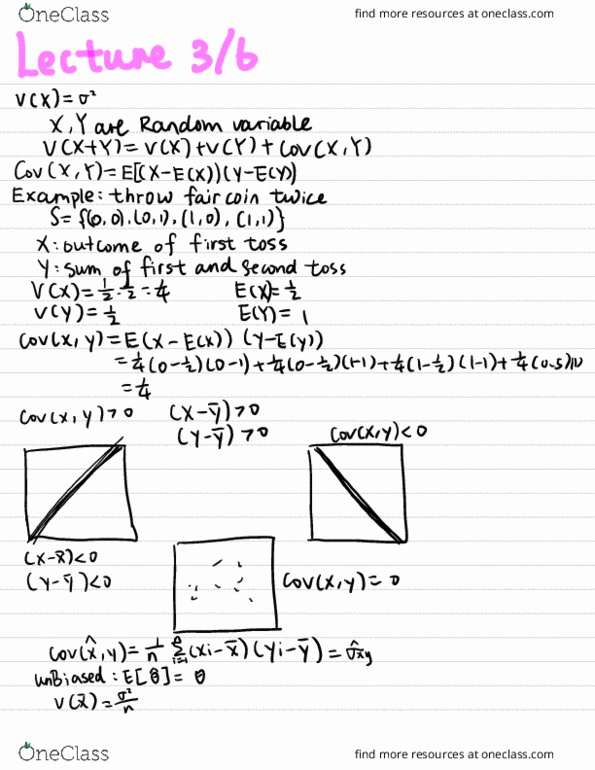 OneClass find more resources at oneclass.com
Lecture 3/6
V(X)=σ²
X,Y are Random variable
V(X+Y)=V(X)+V(Y)+Cov(X,Y)
Cov(X,Y)=E[(X-E(X))(Y-E(Y))
Example: throw fair coin twice
S={(0,0).(0,1),(1,0),(1,1)}
X: outcome of first toss
Y: sum of first and second toss
V(X)=1/2·1/2=1/4 E(X)=1/2
V(Y)=1/2 E(Y)=1
Cov(x,y)=E(X-E(X))(Y-E(y))
=1/4(0-1/2)(0-1)+1/4(0-1/2)(1-1)+1/4(1-1/2)(1-1)+1/4(0.5)(1)
=1/4
Cov(x,y)>0 (X-ȳ)>0
(Y-ȳ)>0 Cov(X,Y)<0
(X-x̄)<0
(Y-ȳ)<0 Cov(X,Y)=0
Cov(x̂,y)=1/n Σ(xi-x̄)(yi-ȳ)=σ̂xy
unBiased: E[θ̂]=θ
V(x̄)=σ²/n
OneClass find more resources at oneclass.com